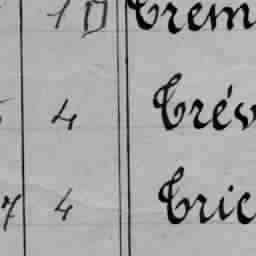 10 Trem
4 Trév
7 4 Tric